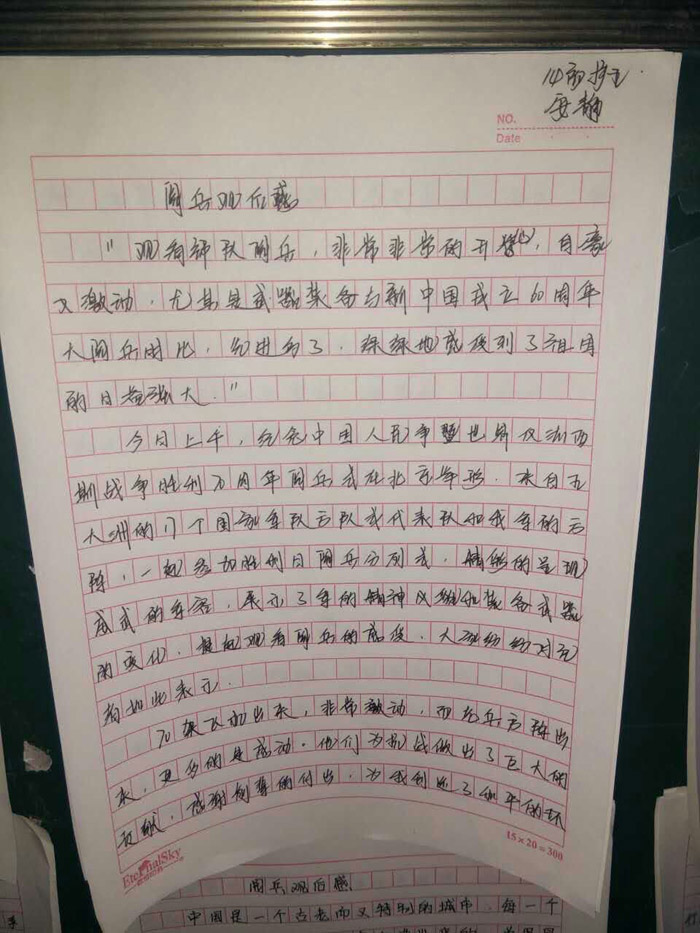 14前护二
NO.
Date
阅兵观后感
"观看部队阅兵,非常非常的开心,自豪
又激动,尤其是武器装备与新中国成立60周年
大阅兵时比,先进多了,深深地感受到了祖国
的日益强大."
今日上午,纪念中国人民争暨世界反法西
斯战争胜利70周年阅兵式在北京举行.来自五
大洲的17个国家军队方队或代表队和我军的方
阵,一起参加胜利日阅兵分列式,精彩的呈现
威武的军容,展示了军的精神风貌和装备武器
的变化,提起观看阅兵的感受,大家纷纷对记
者如此表示.
70架飞机出来,非常激动,而老兵方阵出
来,更多的是感动.他们为抗战做出了巨大的
贡献,感谢前辈的付出,为我创造了和平的环
EternalSky
15×20=300
阅兵观后感
中国是一个古老而又特别的城市,每一个